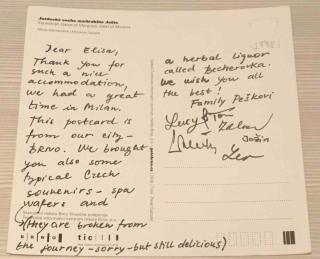 Jezdecká socha markraběte Jošta
Equestrian Statue of Margrave Jobst of Moravia
Dear Elisa,
Thank you for
such a nice
accommodation,
we had a great
time in Milan.
This postcard is
from our city –
Brno. We brought
you also some
typical Czech
souvenirs – spa
wafers and
(they are broken from
the journey – sorry – but still delicious)
a herbal liquor
called Becherovka.
We wish you all
the best!
Family Peškovi
Lucy
Jožin
Leo